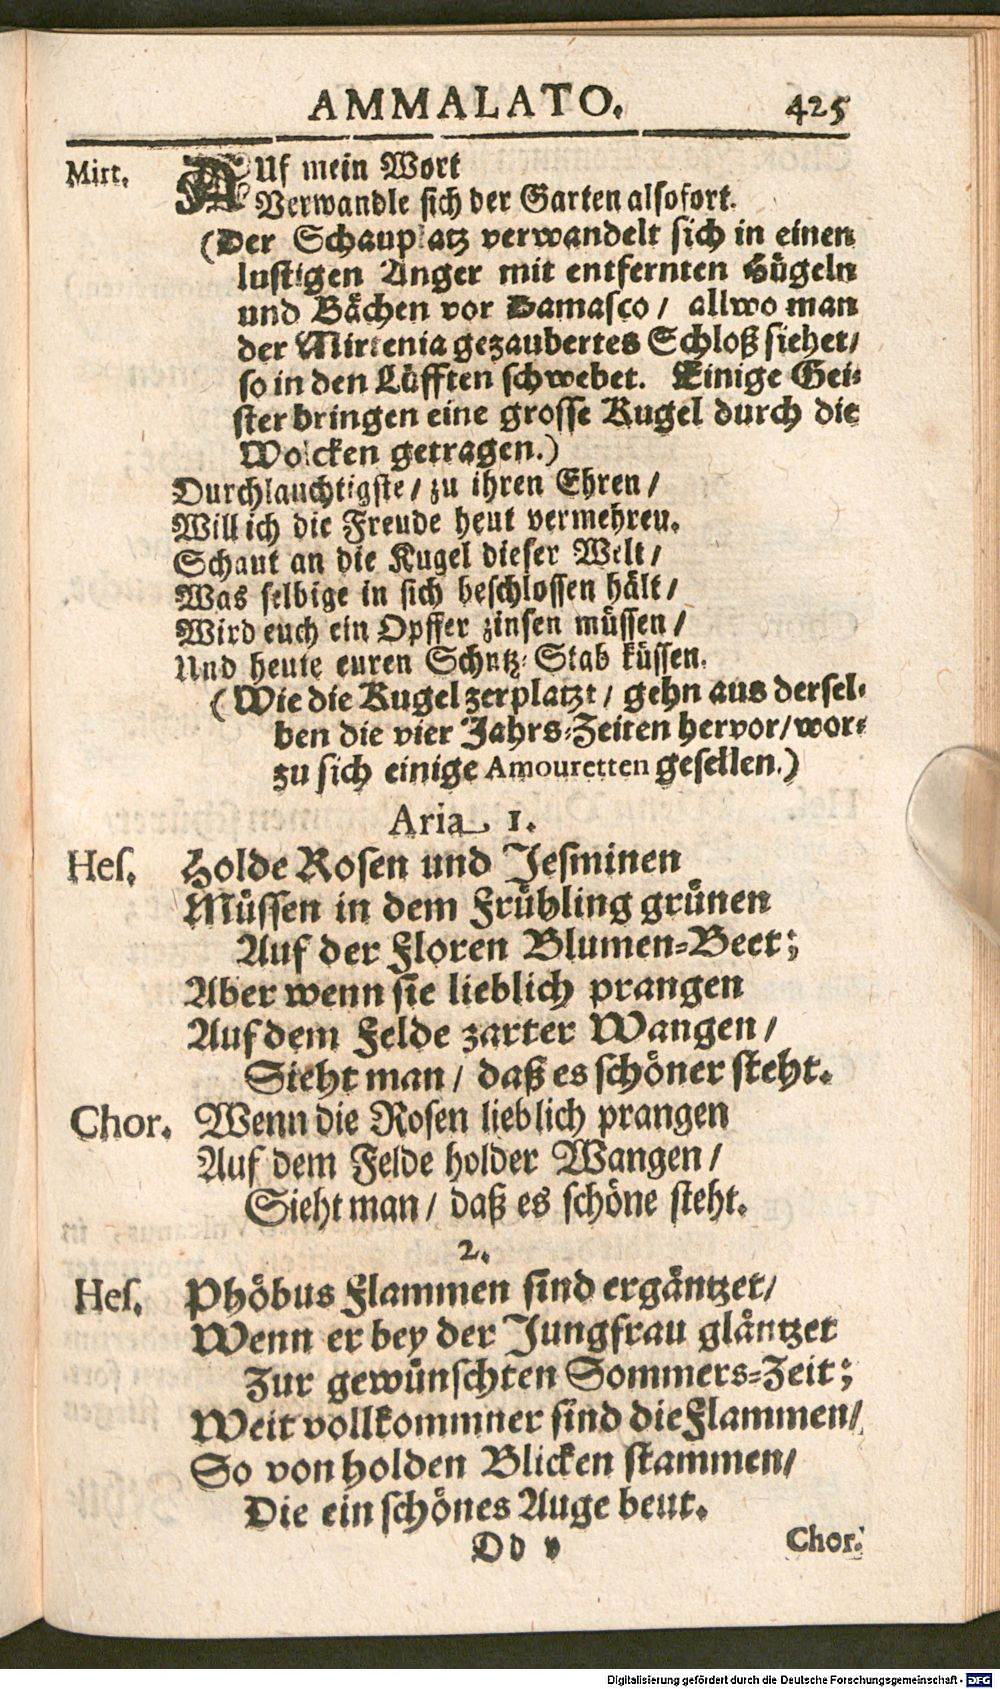 AMMALATO. 425
Mirt. AUf mein Wort
Verwandle sich der Garten alsofort.
(Der Schauplatz verwandelt sich in einen
lustigen Anger mit entfernten Hügeln
und Bächen vor Damasco / allwo man
der Mirtenia gezaubertes Schloß siehet /
so in den Lüfften schwebet. Einige Gei-
ster bringen eine grosse Kugel durch die
Wolcken getragen.)
Durchlauchtigste / zu ihren Ehren /
Will ich die Freude heut vermehren.
Schaut an die Kugel dieser Welt /
Was selbige in sich beschlossen hält /
Wird euch ein Opffer zinsen müssen /
Und heute euren Schutz-Stab küssen.
(Wie die Kugel zerplatzt / gehn aus dersel-
ben die vier Jahrs-Zeiten hervor / wor-
zu sich einige Amouretten gesellen.)
Aria 1.
Hes. Holde Rosen und Jesminen
Müssen in dem Frühling grünen
Auf der Floren Blumen-Beet;
Aber wenn sie lieblich prangen
Auf dem Felde zarter Wangen /
Sieht man / daß es schöner steht.
Chor. Wenn die Rosen lieblich prangen
Auf dem Felde holder Wangen /
Sieht man / daß es schöne steht.
2.
Hes. Phöbus Flammen sind ergäntzet /
Wenn er bey der Jungfrau gläntzet
Zur gewünschten Sommers-Zeit;
Weit vollkommner sind die Flammen /
So von holden Blicken stammen /
Die ein schönes Auge beut.
Dd v Chor.
Digitalisierung gefördert durch die Deutsche Forschungsgemeinschaft - DFG